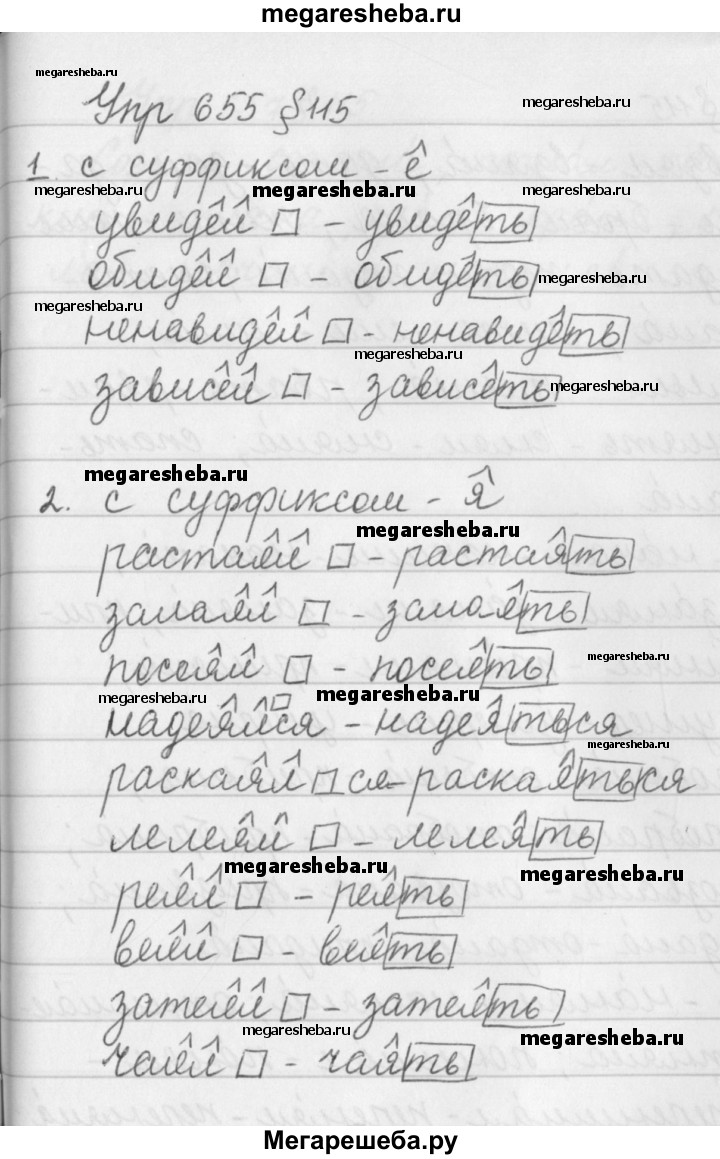 megaresheba.ru
megaresheba.ru
Упр 655 §115
megaresheba.ru
1. с суффиксом - е
megaresheba.ru megaresheba.ru megaresheba.ru
увидел □ - увидеть
обидел □ - обидеть
megaresheba.ru
megaresheba.ru
ненавидел □ - ненавидеть
megaresheba.ru
зависел □ - зависеть
megaresheba.ru
megaresheba.ru
2. с суффиксом - я
megaresheba.ru
растаял □ - растаять
залаял □ - залаять
посеял □ - посеять
megaresheba.ru
megaresheba.ru megaresheba.ru
надеялся - надеяться
megaresheba.ru
раскаял □ ся - раскаяться
лелеял □ - лелеять
megaresheba.ru megaresheba.ru
реял □ - реять
веял □ - веять
затеял □ - затеять
megaresheba.ru megaresheba.ru
чаял □ - чаять
Мегарешеба.ру